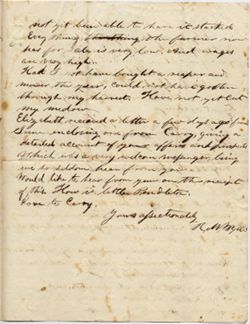 not yet been able to have it stacked
Every thing the farmer now
has for sale is very low. And wages
are very high.
Had I not have bought a reaper and
mower this year, could not have gotten
through my harvest. Have not yet cut
my meadow.
Elizabeth received a letter a few days ago from
enclosing one from Cerry, giving a
detailed account of your affairs and prospects
which was a very welcome messenger, being
we so seldom hear from you.
Would like to hear from you on the receipt
of this. How is little
Love to Cerry.
Yours affectionately